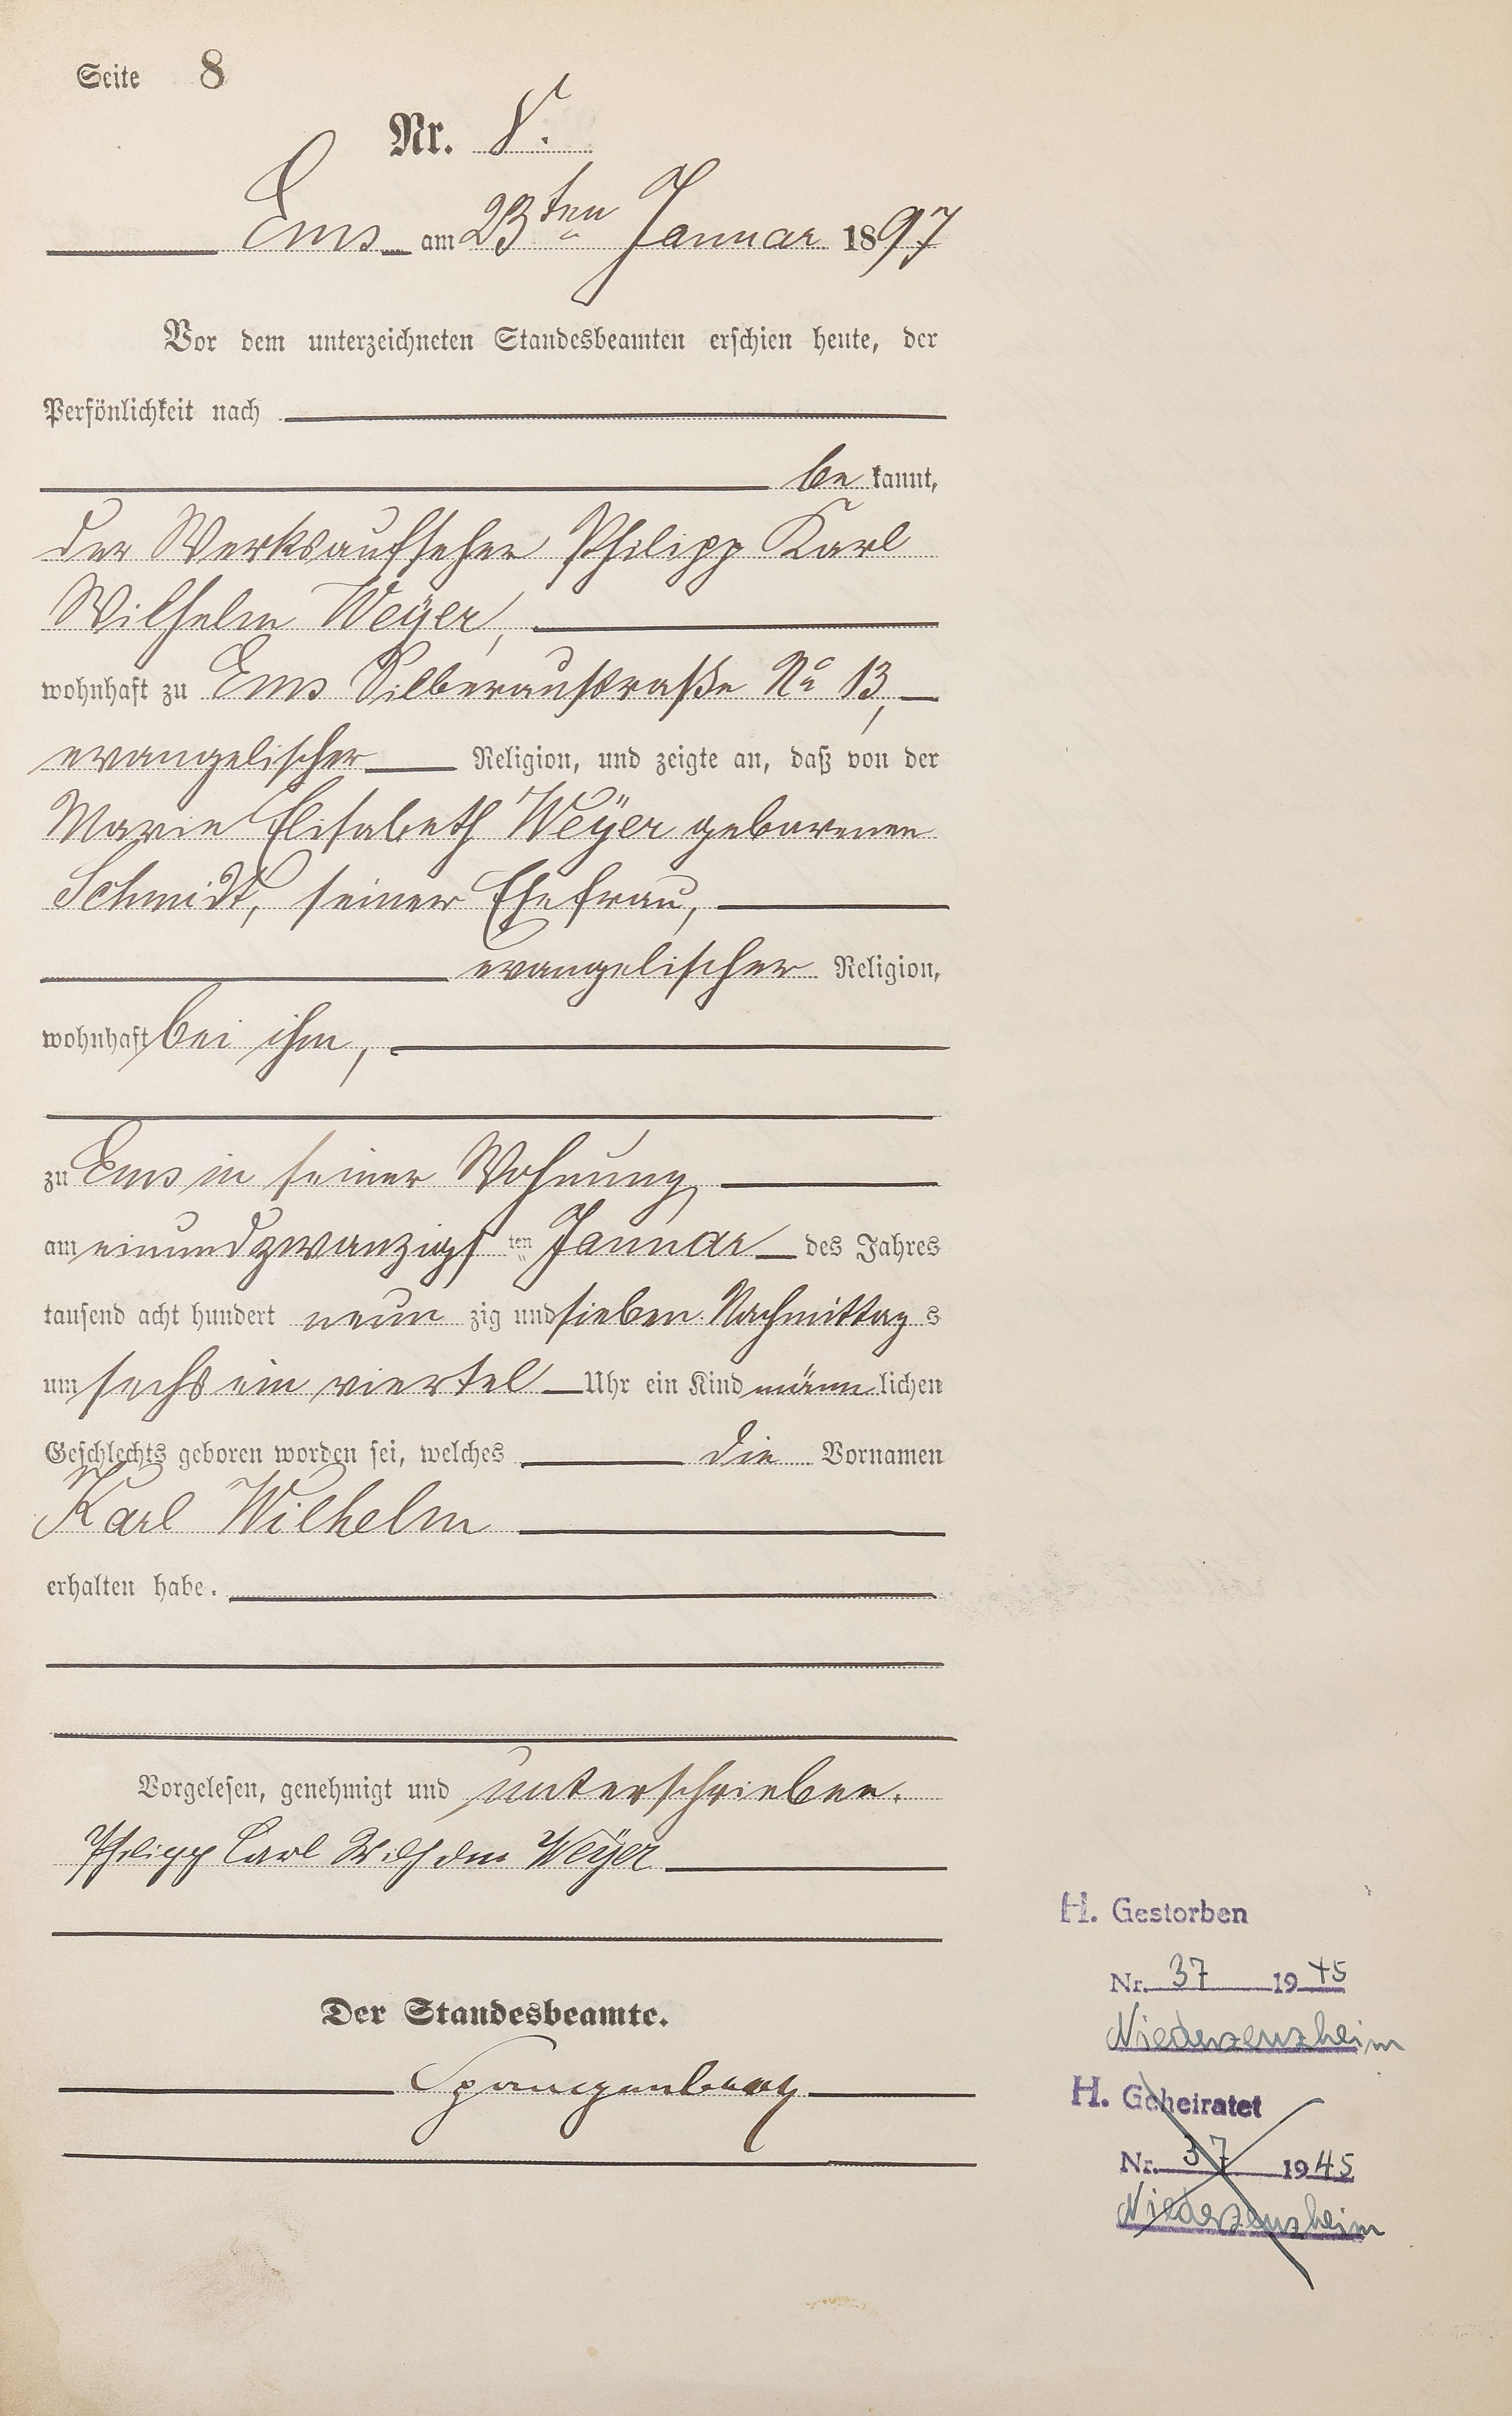 Seite 8
Nr. 8.
Ems am 23ten Januar 1897
Vor dem unterzeichneten Standesbeamten erschien heute, der
Persönlichkeit nach
be kannt,
der Werksaufseher Philipp Karl
Wilhelm Weÿer,
wohnhaft zu Ems Silberaustraße No 13,
evangelischer Religion, und zeigte an, daß von der
Marie Elisabeth Weÿer geborenen
Schmidt, seiner Ehefrau,
evangelischer Religion,
wohnhaft bei ihm,
zu Ems in seiner Wohnung
am einundzwanzigs ten Januar des Jahres
tausend acht hundert neun zig und sieben Nachmittag s
um sechs ein viertel Uhr ein Kind männ lichen
Geschlechts geboren worden sei, welches die Vornamen
Karl Wilhelm
erhalten habe.
Vorgelesen, genehmigt und unterschrieben.
Philipp Carl Wilhelm Weÿer
Der Standesbeamte.
Spangenberg
H. Gestorben
Nr. 37 1945
Niederzeuzheim
H. Geheiratet
Nr. 37 1945
Niederzeuzheim